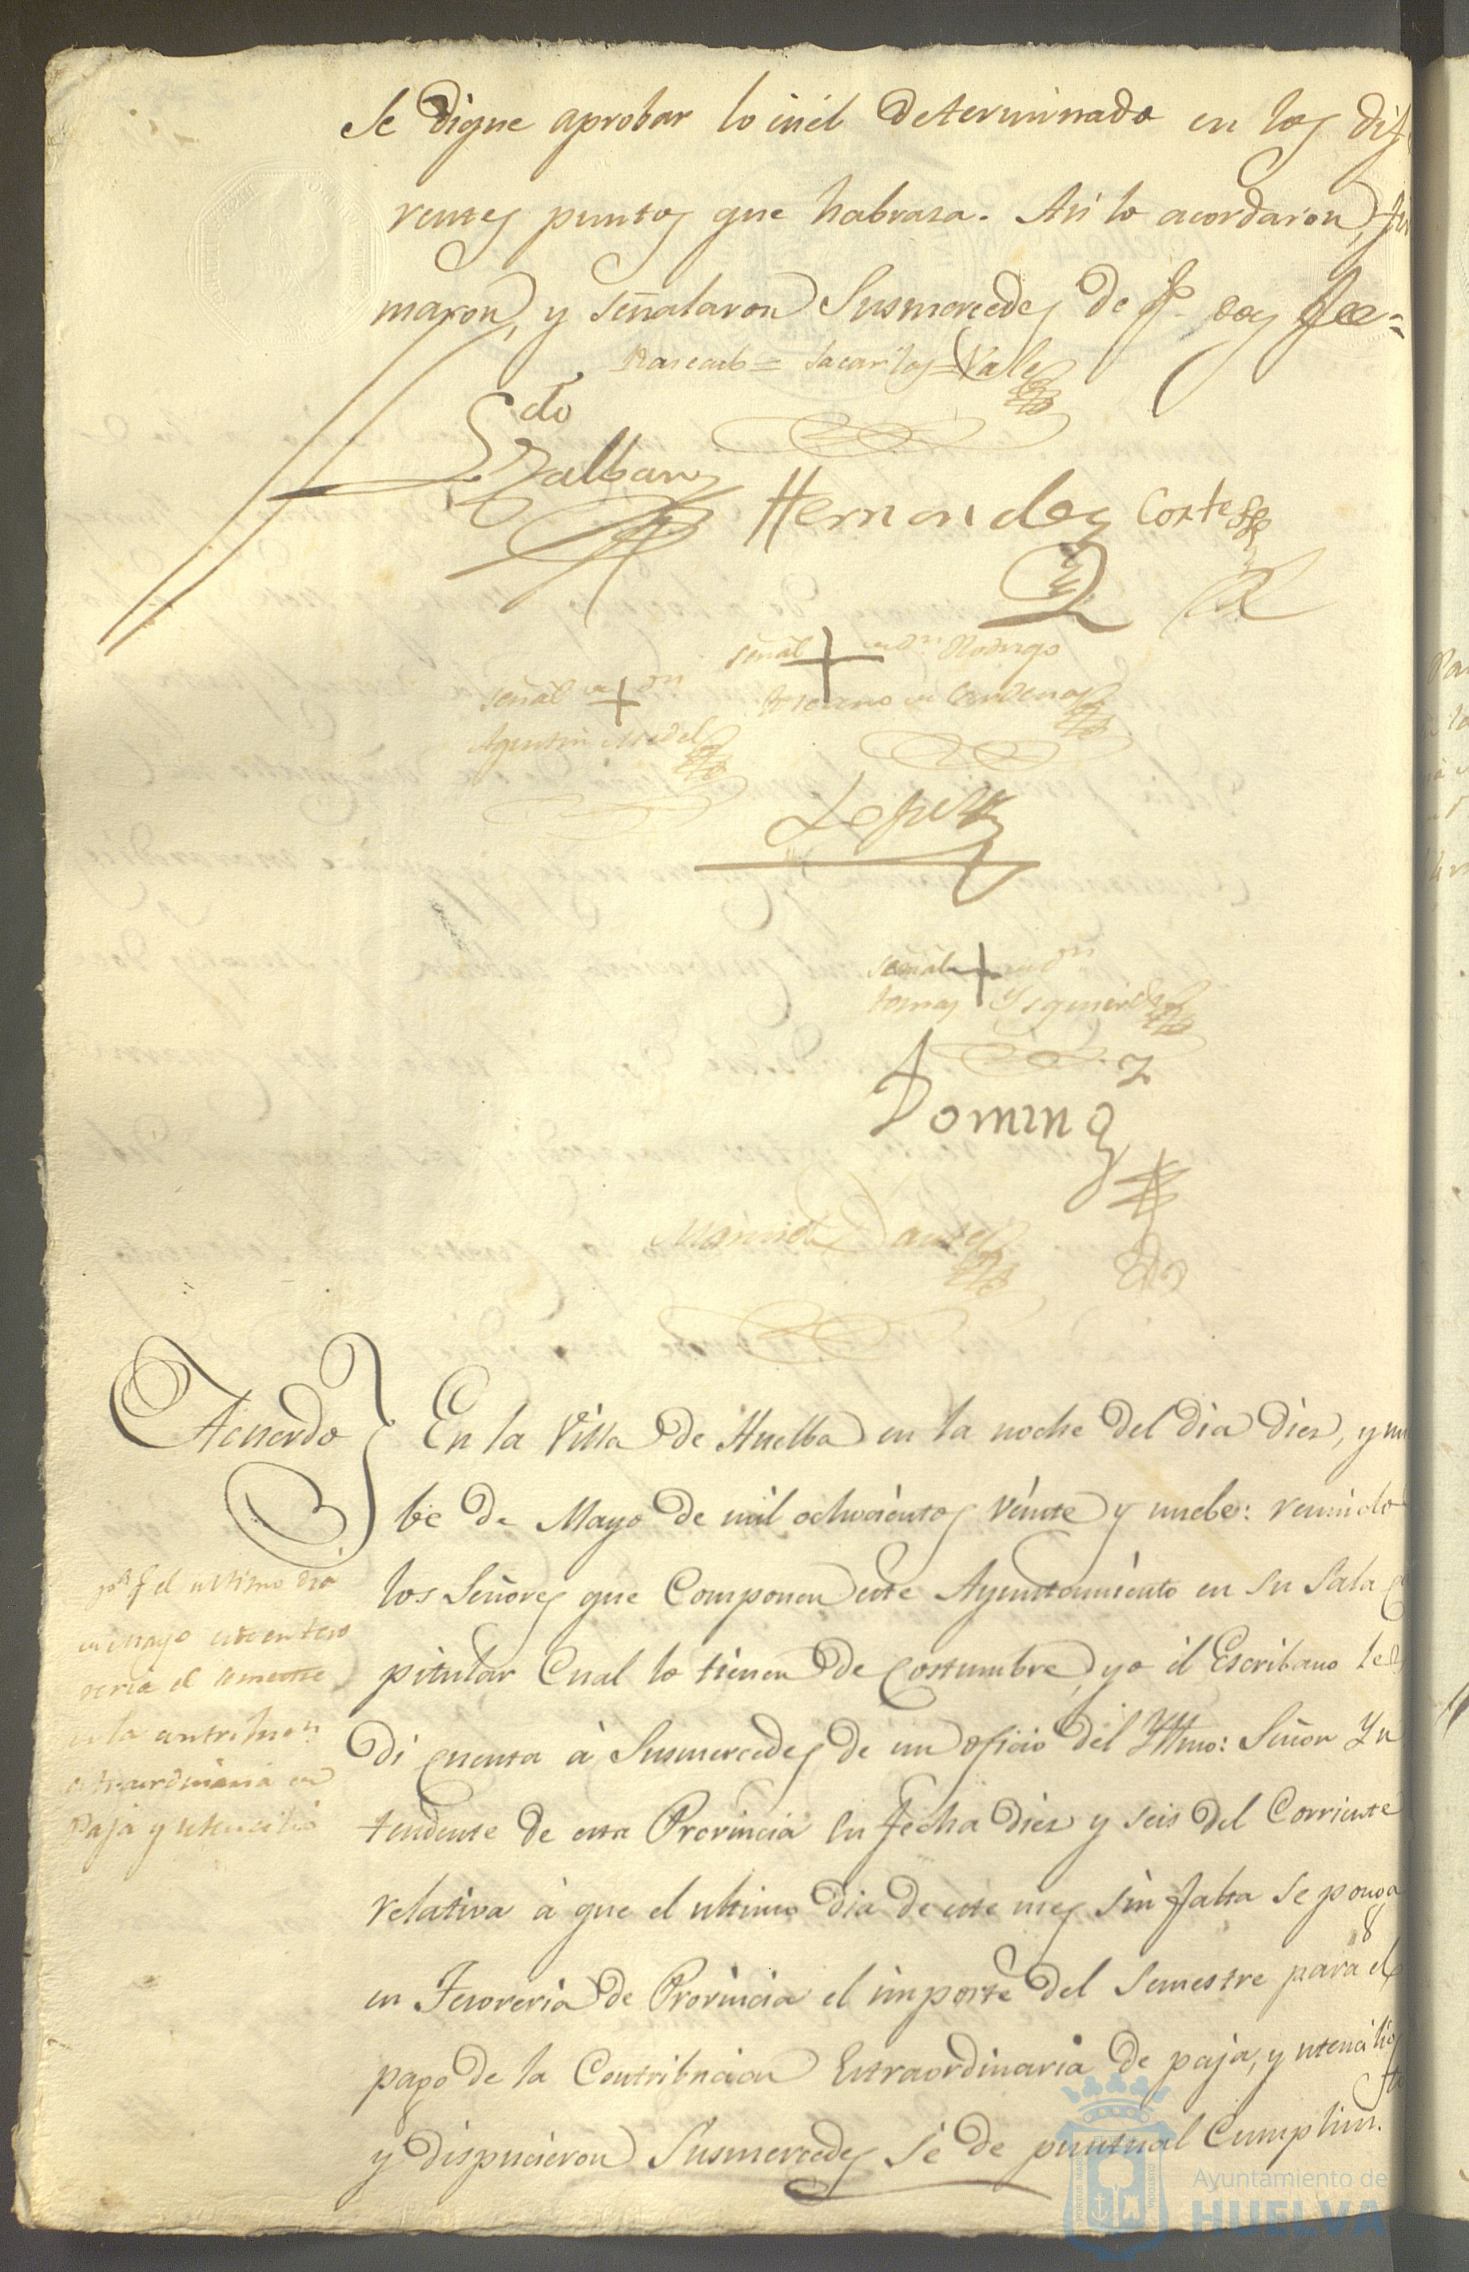 Se digne aprobar lo en el determinado en los dife
rentes puntos que habraza. Asi lo acordaron, fir
maron, y señalaron Susmercedes de q.e doy fee=
Rascado = sacar los = Vale
Lizdo
Balban
Hernandez Cortes
señal + de Dn Rodrigo
señal de + Dn
Moreno de Cardenas
Agustin Medel
Lopez
señal + de Dn
tomas Ysquierdo
Domingz
Manuel
Acuerdo
En la Villa de Huelba en la noche del dia diez, y nu
be de Mayo de mil ochocientos veinte y nuebe: reunidos
los Señores que Componen este Ayuntamiento en su Sala Ca
pitular Cual lo tienen de Costumbre, yo el Escribano les
di cuenta à Susmercedes de un oficio del Yltmo: Señor Yn
tendente de esta Provincia su fecha diez y seis del Corriente
relativa à que el ultimo dia de este mes sin falta se ponga
en Tesoreria de Provincia el importe del Semestre para el
pago de la Contribucion Estraordinaria de paja, y utencilios
y dispusieron Susmercedes se de puntual Cumplim.to
para q el ultimo dia
de mayo este en teso
reria el semestre
de la contribucn
estraordinaria de
Paja y utencilio
Ayuntamiento de
HUELVA